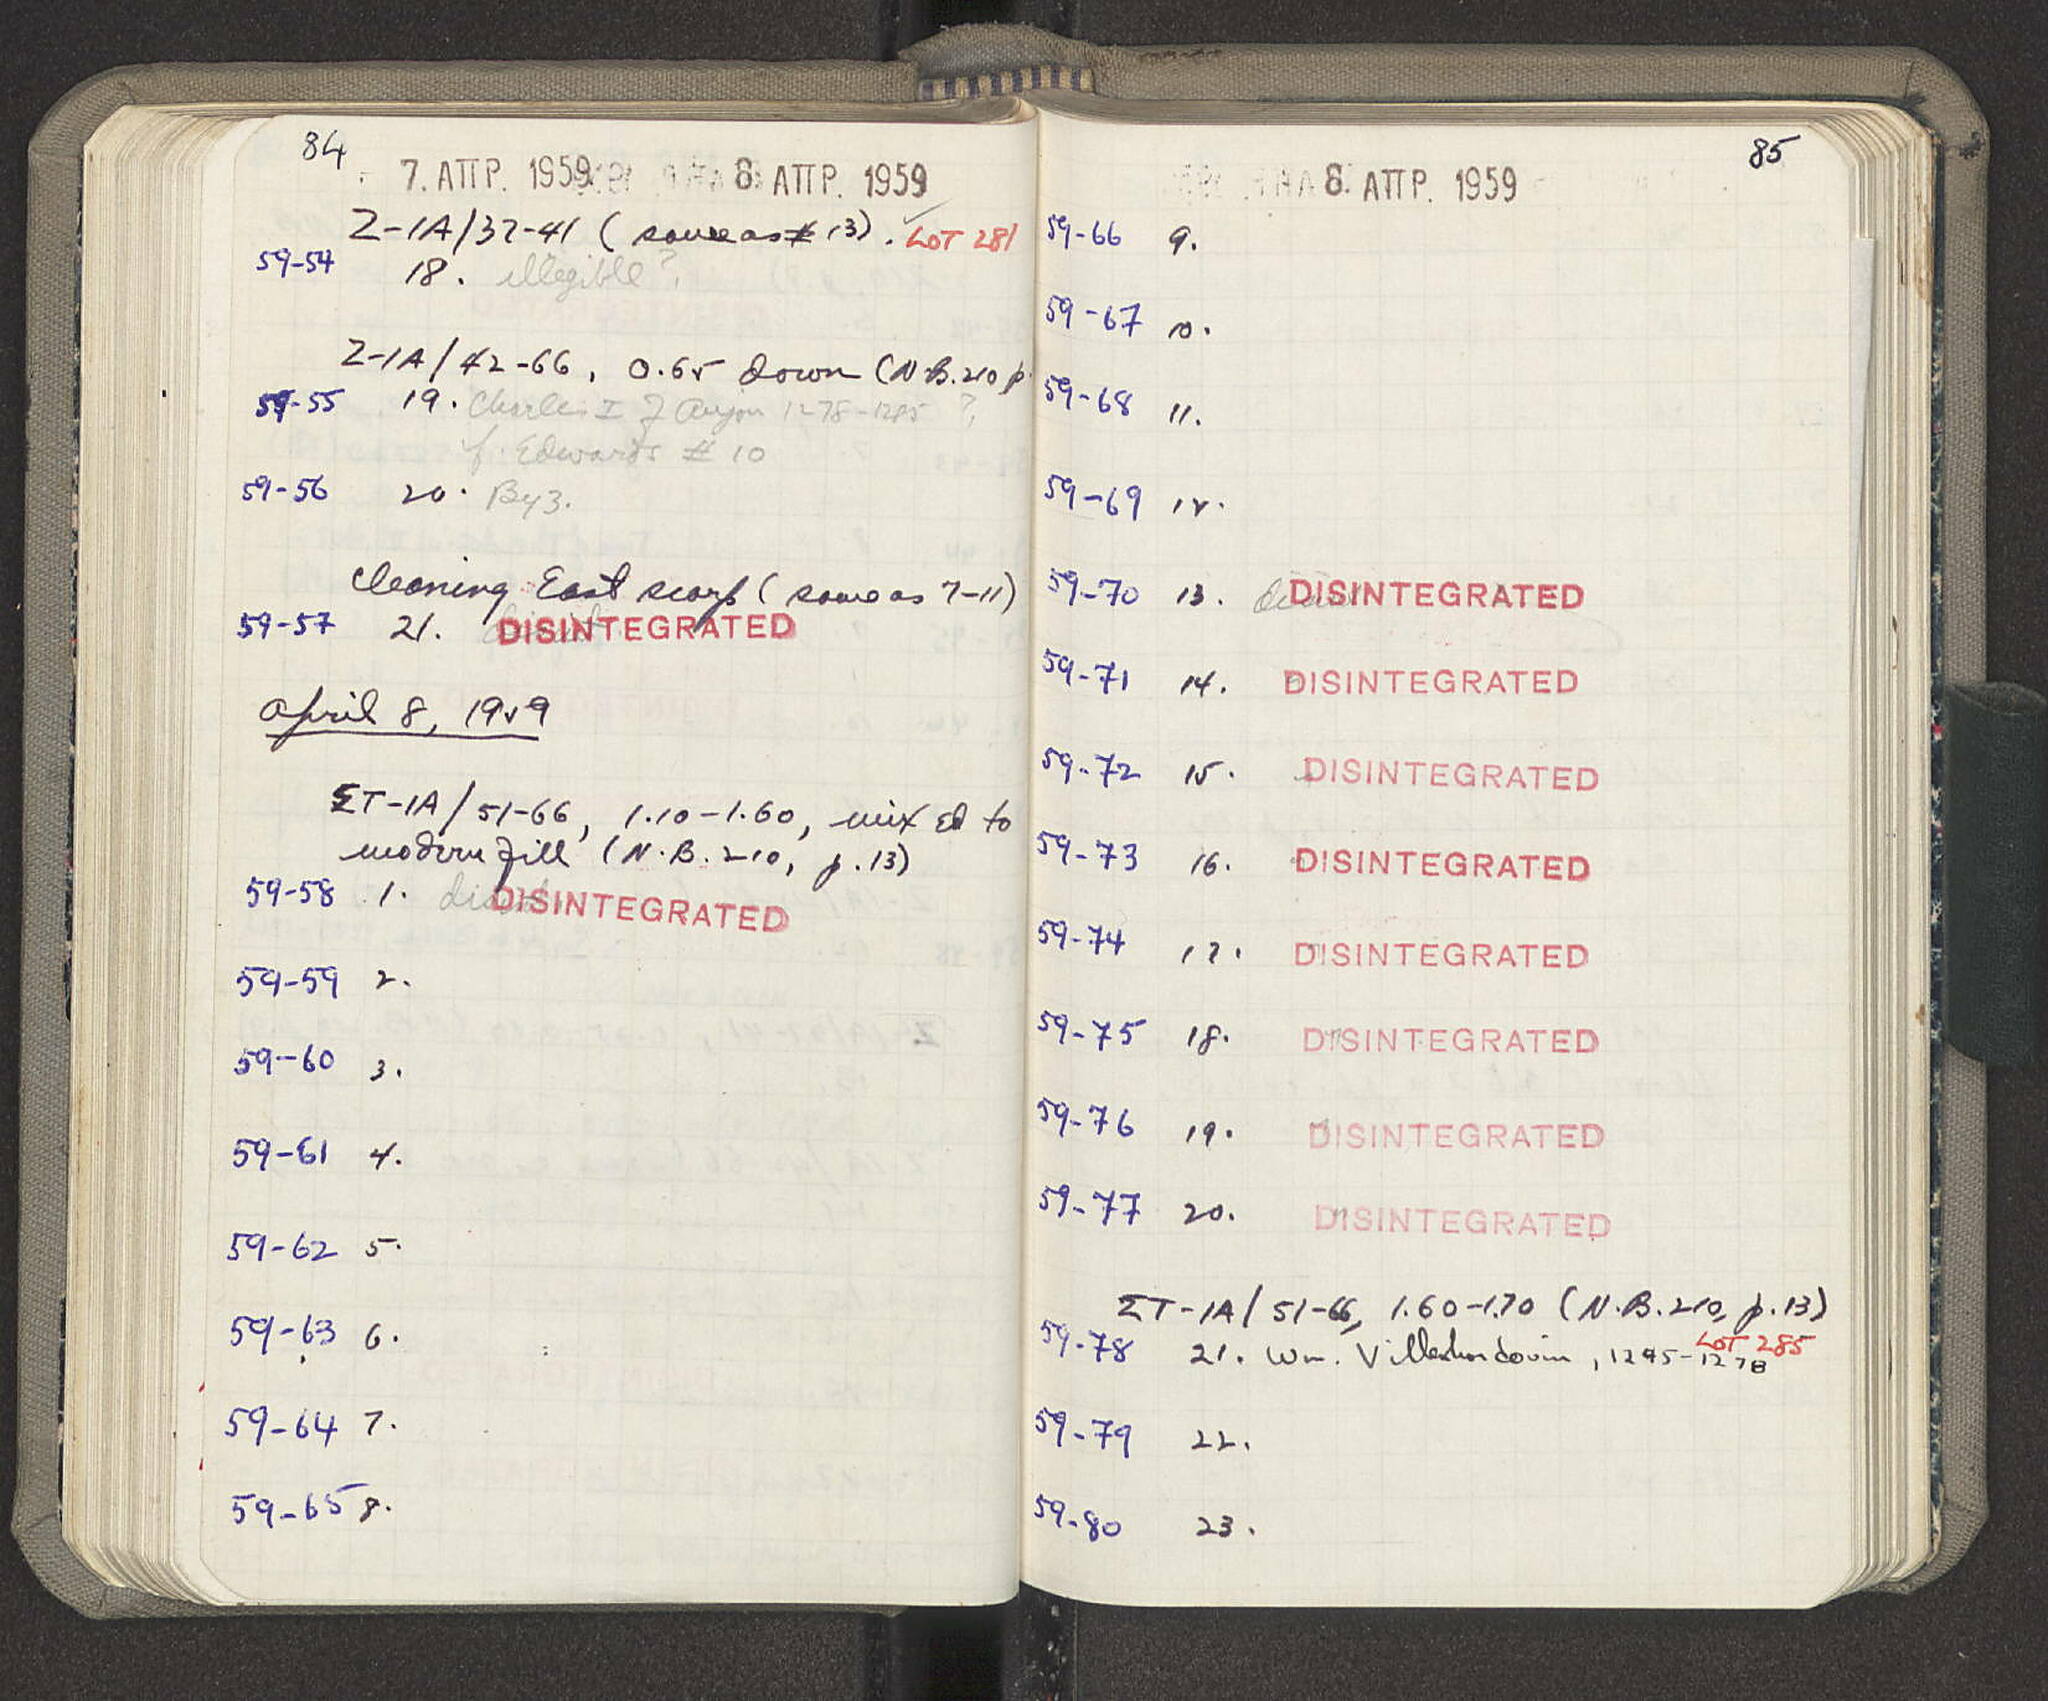 84
7. ΑΠΡ. 1959 8 ΑΠΡ. 1959
Z-1A/37-41 (same as # 13). LOT 281
59-54 18. illegible?
Z-1A/42-66, 0.65 down (N.B. 210 p.
59-55 19. Charles I of Anjou 1278-1285 ?
cf. Edwards # 10
59-56 20. Byz.
Cleaning East scarp (same as 7-11)
59-57 21. DISINTEGRATED
April 8, 1959
ΣΤ-1A/51-66, 1.10-1.60, mixed to
modern fill (N.B. 210, p. 13)
59-58 1. DISINTEGRATED
59-59 2.
59-60 3.
59-61 4.
59-62 5.
59-63 6.
59-64 7.
59-65 8.
85
8. ΑΠΡ. 1959
59-66 9.
59-67 10.
59-68 11.
59-69 12.
59-70 13. DISINTEGRATED
59-71 14. DISINTEGRATED
59-72 15. DISINTEGRATED
59-73 16. DISINTEGRATED
59-74 17. DISINTEGRATED
59-75 18. DISINTEGRATED
59-76 19. DISINTEGRATED
59-77 20. DISINTEGRATED
ΣΤ-1A/51-66, 1.60-1.70 (N.B. 210, p. 13)
LOT 285
59-78 21. Wm. Villehardouin, 1245-1278
59-79 22.
59-80 23.